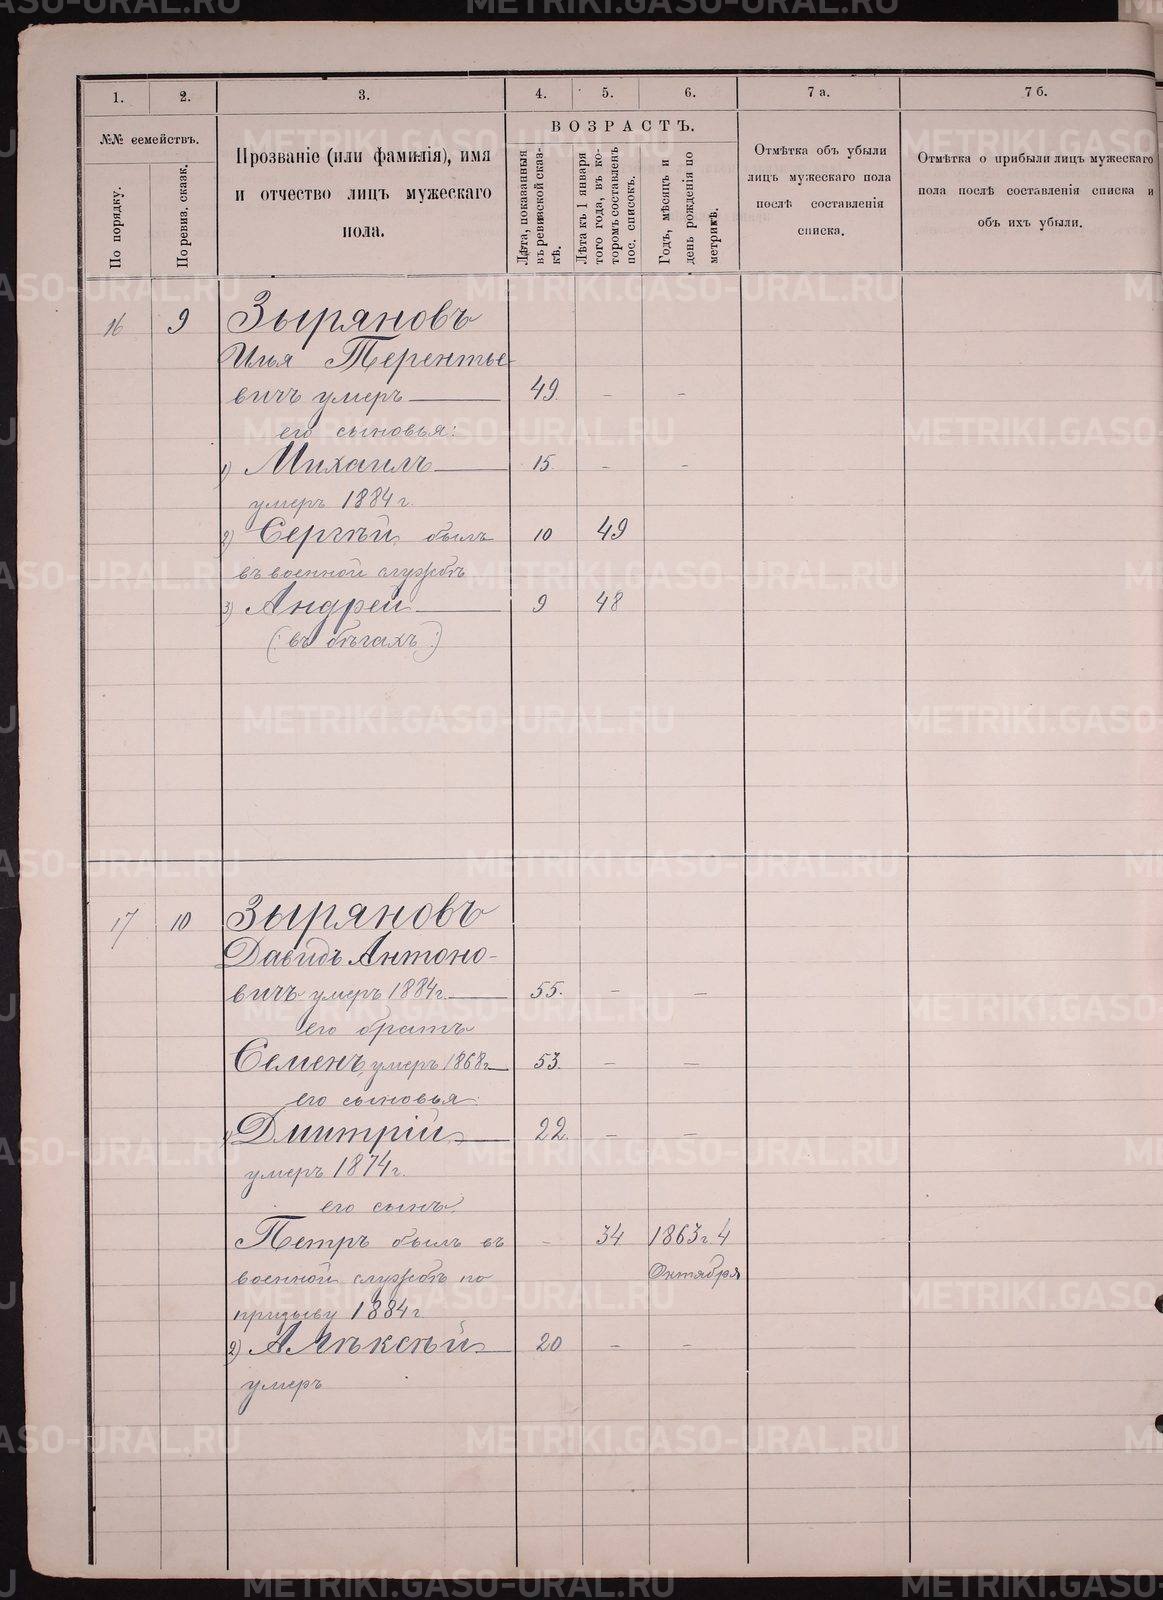 1. 2. 3. 4. 5. 6. 7 а. 7 б.
№№ семействъ.
По порядку.
По ревиз. сказк.
Прозваніе (или фамилія), имя
и отчество лицъ мужескаго
пола.
ВОЗРАСТЪ.
Лѣта, показанныя
въ ревизской сказ-
кѣ.
Лѣта къ 1 января
того года, въ ко-
торомъ составленъ
пос. списокъ.
Годъ, мѣсяцъ и
день рожденія по
метрикѣ.
Отмѣтка объ убыли
лицъ мужескаго пола
послѣ составленія
списка.
Отмѣтка о прибыли лицъ мужескаго
пола послѣ составленія списка и
объ ихъ убыли.
16 9 Зыряновъ
Илья Терентье-
вичъ умеръ — 49. – –
его сыновья:
1) Михаилъ — 15. – –
умеръ 1884 г.
2) Сергѣй былъ 10 49
въ военной службѣ
3) Андрей — 9 48
(: въ бѣгахъ :)
17 10 Зыряновъ
Давидъ Антоно-
вичъ умеръ 1884 г. — 55. – –
его братъ
Семенъ, умеръ 1868 г — 53. – –
его сыновья:
1) Дмитрій — 22. – –
умеръ 1874 г.
его сынъ:
Петръ былъ въ – 34 1863 г. 4
Октября
военной службѣ по
призыву 1884 г.
2) Алѣксѣй — 20 – –
умеръ
METRIKI.GASO-URAL.RU